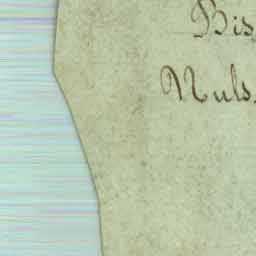 Bis
Nuls.